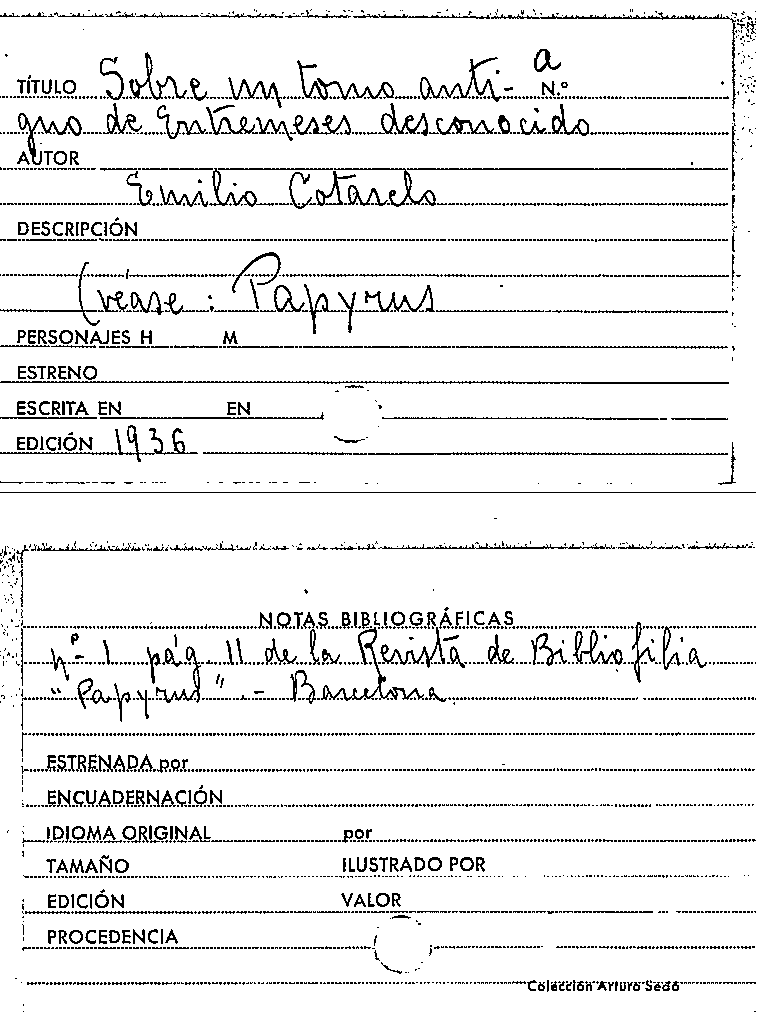 a
TÍTULO Sobre un tomo anti- N.º
guo de Entremeses desconocido
AUTOR
Emilio Cotarelo
DESCRIPCIÓN
(véase: Papyrus
PERSONAJES H M
ESTRENO
ESCRITA EN EN
EDICIÓN 1936
NOTAS BIBLIOGRÁFICAS
nº 1 pág. 11 de la Revista de Bibliofilia
"Papyrus". - Barcelona
ESTRENADA por
ENCUADERNACIÓN
IDIOMA ORIGINAL por
TAMAÑO ILUSTRADO POR
EDICIÓN VALOR
PROCEDENCIA
Colección Arturo Sedó